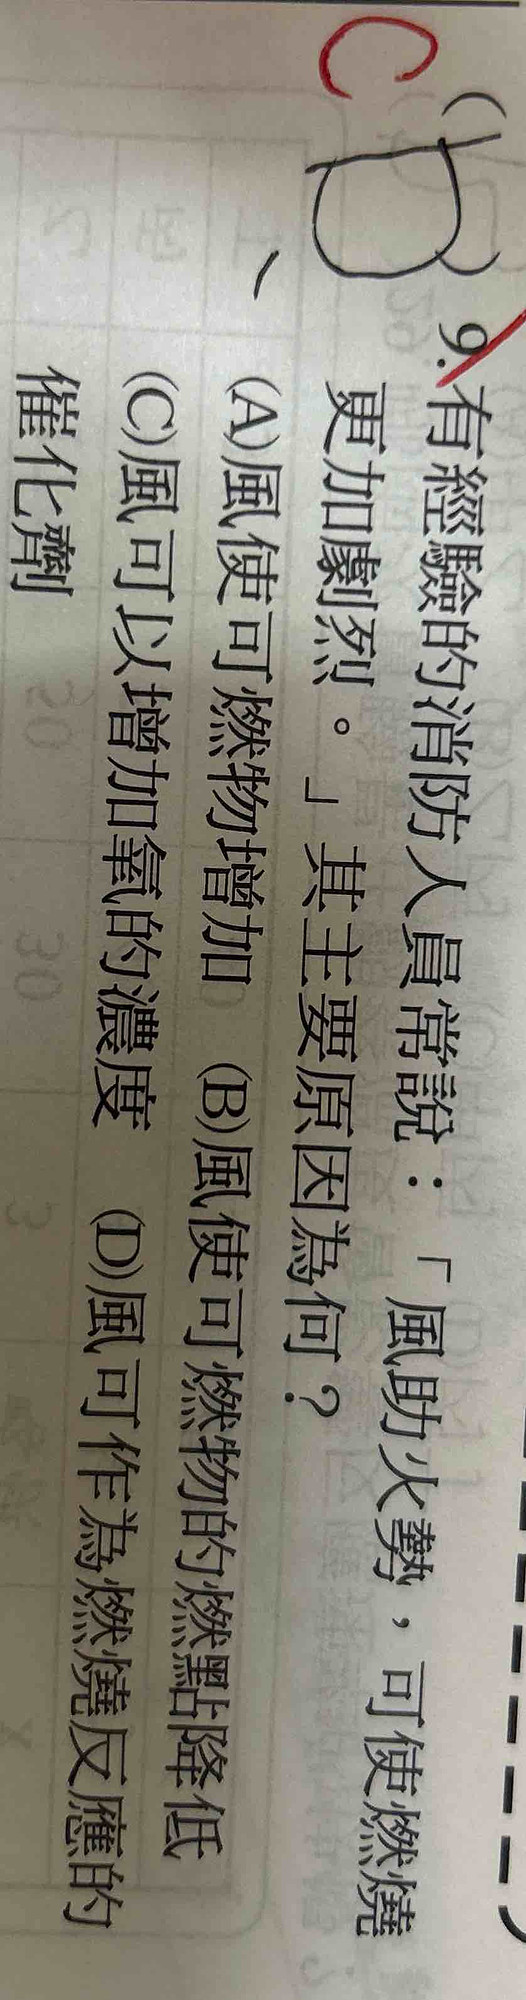 C
(B) 9.有經驗的消防人員常說：「風助火勢，可使燃燒
更加劇烈。」其主要原因為何？
(A)風使可燃物增加 (B)風使可燃物的燃點降低
(C)風可以增加氧的濃度 (D)風可作為燃燒反應的
催化劑